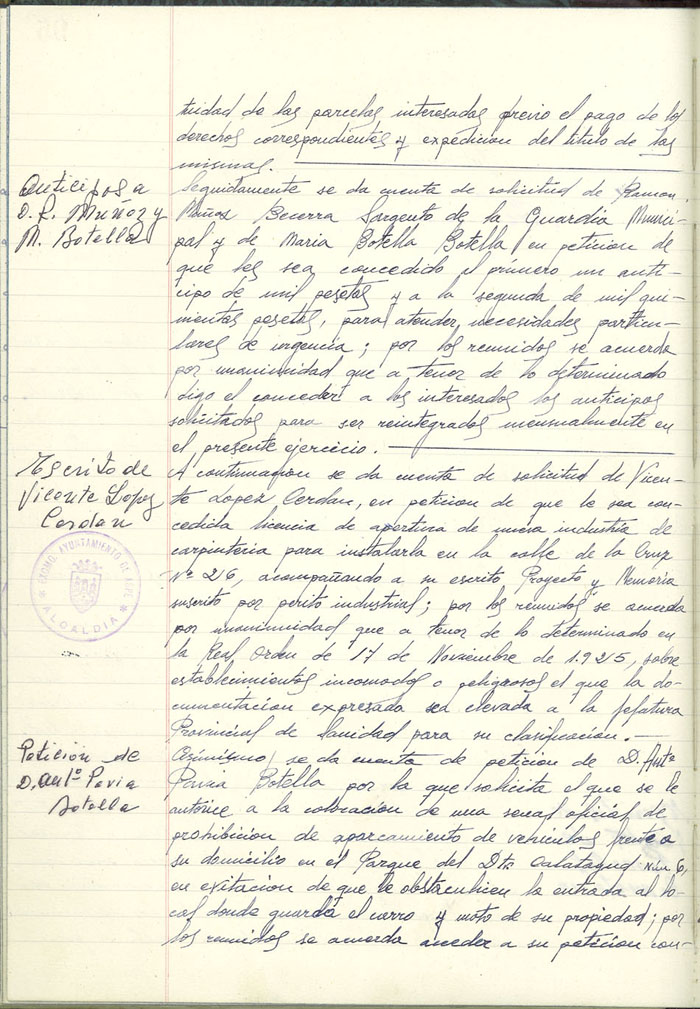 tuidad de las parcelas interesadas previo el pago de los
derechos correspondientes y expedicion del titulo de las
mismas.
Anticipos a
D. R. Muñoz y
M. Botella
Seguidamente se da cuenta de solicitud de Ramon
Muñoz Becerra Sargento de la Guardia Munici-
pal y de Maria Botella Botella en peticion de
que les sea concedido al primero un anti-
cipo de mil pesetas y a la segunda de mil qui-
nientas pesetas, para atender necesidades particu-
lares de urgencia; por los reunidos se acuerda
por unanimidad que a tenor de lo determinado
digo el conceder a los interesados los anticipos
solicitados para ser reintegrados mensualmente en
el presente ejercicio.
Escrito de
Vicente Lopez
Cerdan
A continuacion se da cuenta de solicitud de Vicen-
te Lopez Cerdan, en peticion de que le sea con-
cedida licencia de apertura de nueva industria de
carpinteria para instalarla en la calle de la Cruz
Nº 26, acompañando a su escrito Proyecto y Memoria
suscrito por perito industrial; por los reunidos se acuerda
por unanimidad que a tenor de lo determinado en
la Real Orden de 17 de Noviembre de 1.925, sobre
establecimientos incomodos o peligrosos el que la do-
cumentacion expresada sea elevada a la Jefatura
Provincial de Sanidad para su clasificacion.—
EXCMO. AYUNTAMIENTO DE ASPE
* ALCALDIA *
Peticion de
D. Antº Pavia
Botella
Asimismo se da cuenta de peticion de D. Antº
Pavia Botella por la que solicita el que se le
autorice a la colocacion de una señal oficial de
prohibicion de aparcamiento de vehiculos frente a
su domicilio en el Parque del Dtr. Calatayud Núm. 6,
en evitacion de que le obstaculicen la entrada al lo-
cal donde guarda el carro y moto de su propiedad; por
los reunidos se acuerda acceder a su peticion con-